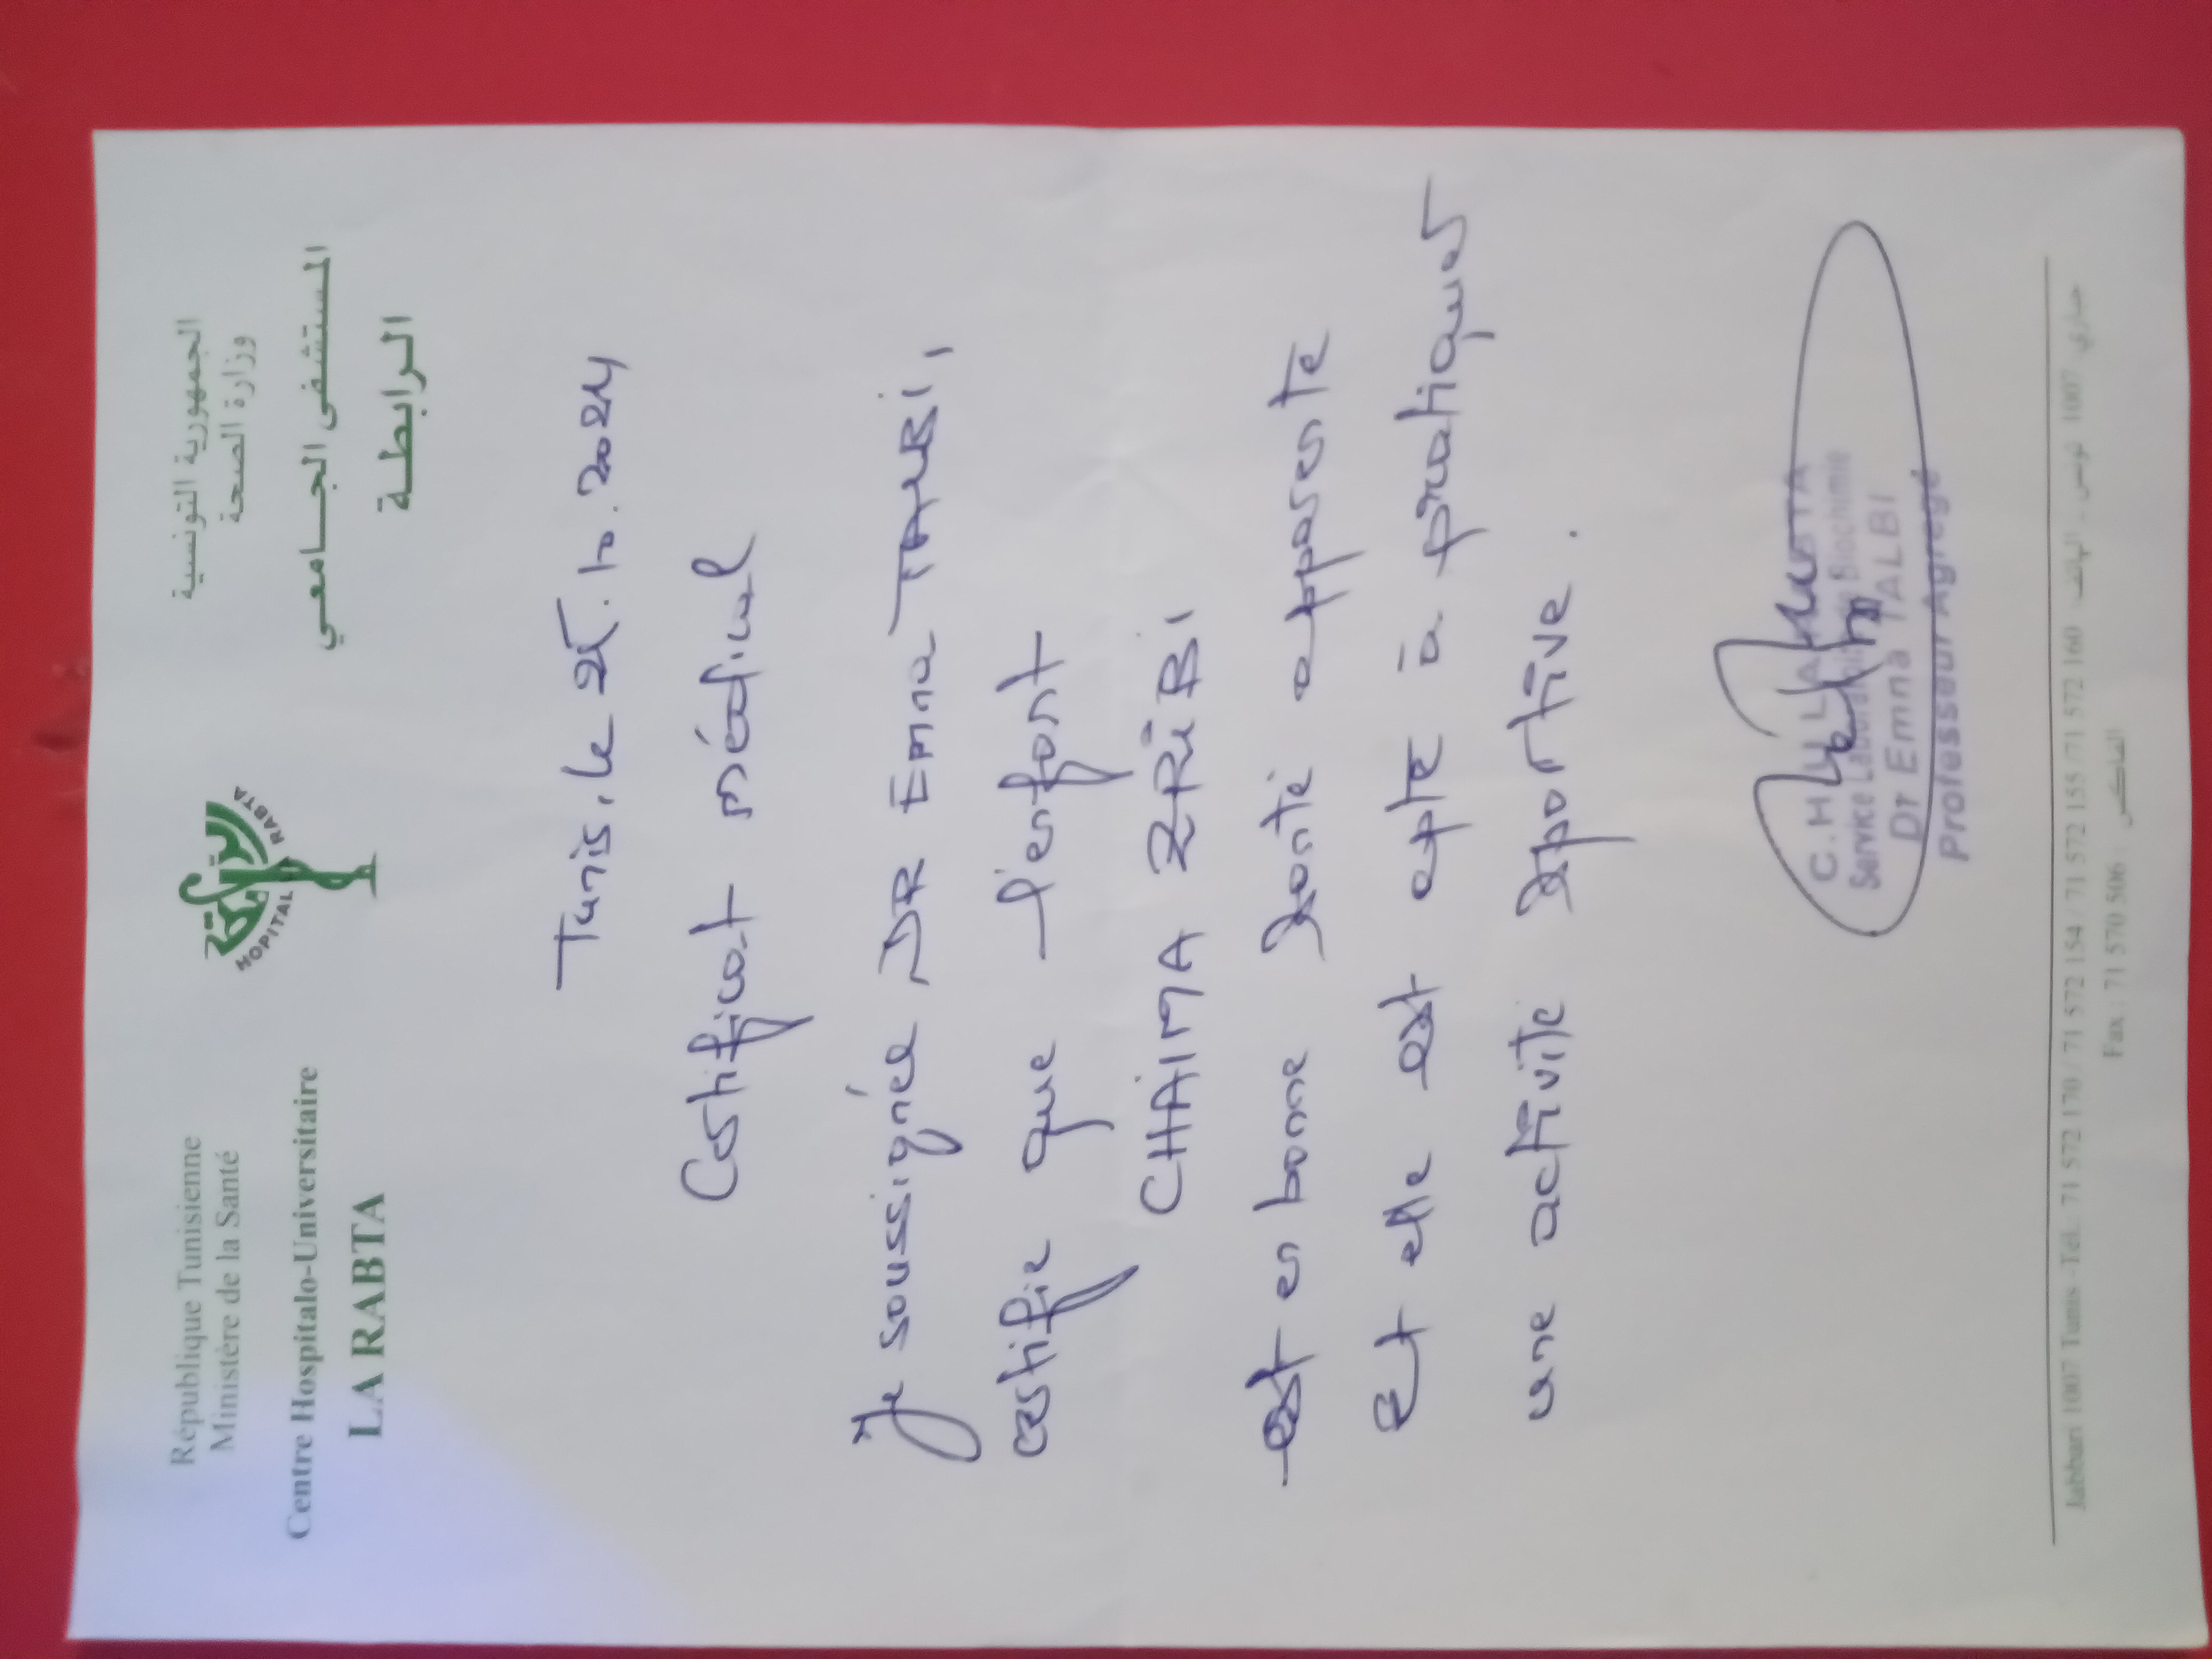 République Tunisienne
Ministère de la Santé
Centre Hospitalo-Universitaire
LA RABTA
الرابطة
HOPITAL LA RABTA
الجمهورية التونسية
وزارة الصحة
المستشفى الجــامعــي
الـرابطـة
Tunis, le 25.10.2024
Certificat médical
Je soussignée DR Emna TALBI,
certifie que l'enfant
CHAIMA ZRIBI
est en bonne santé apparente
et elle est apte à pratiquer
une activité sportive.
C.H.U LA RABTA
Service Laboratoire de Biochimie
Dr Emna TALBI
Professeur Agrégé
Jabbari 1007 Tunis -Tél.: 71 572 170 / 71 572 154 / 71 572 155 /71 572 160 الهاتف : جباري 1007 تونس
Fax : 71 570 506 : الفاكس